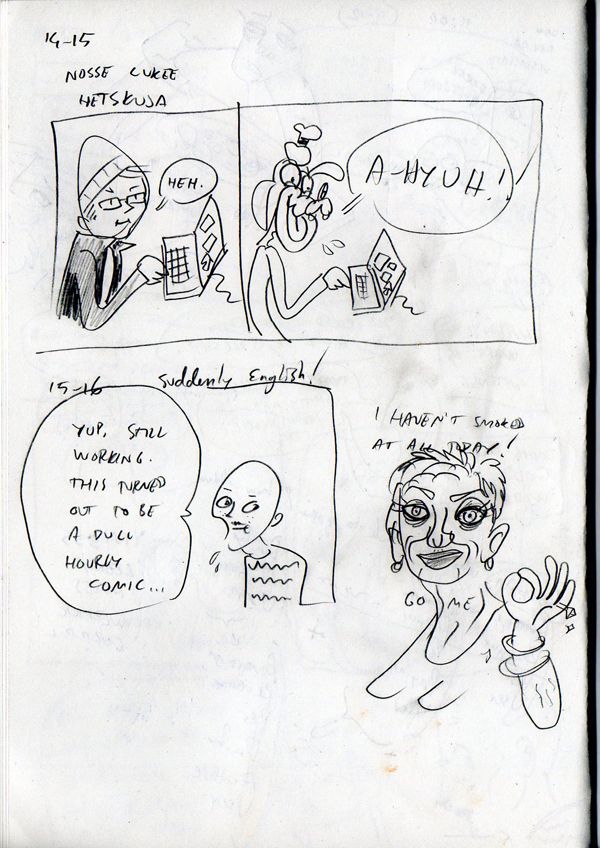 14-15
NOSSE LUKEE
HETSKUJA
HEH.
A-HYUH!
15-16
Suddenly English!
YUP, STILL
WORKING.
THIS TURNED
OUT TO BE
A DULL
HOURLY
COMIC...
I HAVEN'T SMOKED
AT ALL TODAY!
GO ME